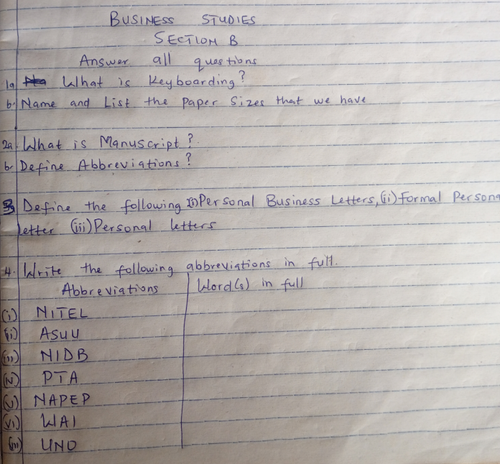 BUSINESS STUDIES
SECTION B
Answer all questions
1a What is Keyboarding?
b. Name and List the Paper Sizes that we have
2a. What is Manuscript?
b. Define Abbreviations?
3. Define the following (i) Personal Business Letters, (ii) Formal Persona
letter (iii) Personal letters
4. Write the following abbreviations in full.
Abbreviations Word(s) in full
(i) NITEL
(ii) ASUU
(iii) NIDB
(iv) PTA
(v) NAPEP
(vi) WAI
(vii) UNO